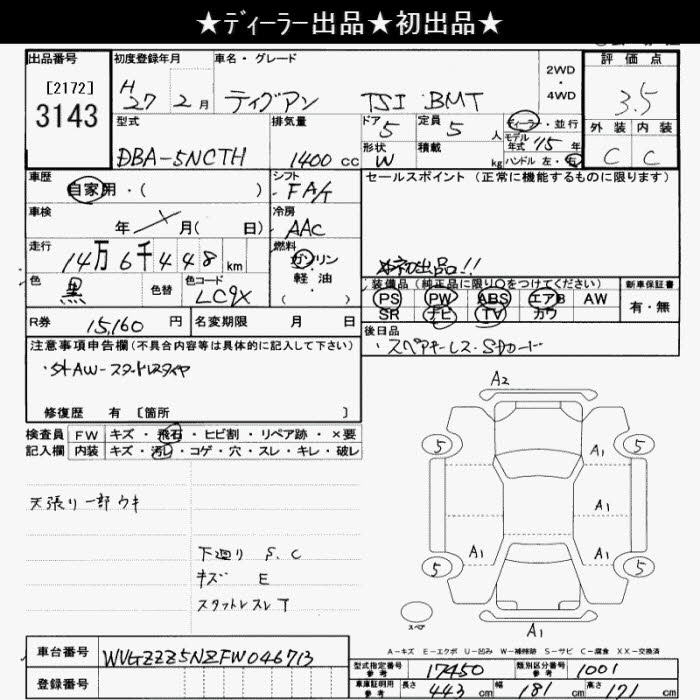 ★ディーラー出品★初出品★
出品番号 初度登録年月 車名・グレード 2WD・4WD 評価点
[2172]
3143 H27 2月 ティグアン TSI BMT 3.5
型式 排気量 ドア 5 定員 5人 ディーラー・並行 外装 内装
DBA-5NCTH 1400cc 形状 W 積載 kg モデル年式 '15年 ハンドル 左・右 C C
車歴 自家用・( ) シフト FA/t セールスポイント(正常に機能するものに限ります)
車検 年 月( 日) 冷房 AAC
走行 14万6千448km 燃料 ガソリン 軽油 ( ) 初出品!!
色 黒 色替 色コード LC9X 装備品(純正品に限り○をつけてください) 新車保証書
PS PW ABS エアB AW 有・無
SR ナビ TV カワ
R券 15,160円 名変期限 月 日 後日品
・スペアキーレス・SDカード
注意事項申告欄(不具合内容等は具体的に記入して下さい)
・社外AW-スタッドレスタイヤ
修復歴 有 [箇所 ]
検査員 FW キズ・飛石・ヒビ割・リペア跡・×要
記入欄 内装 キズ・汚れ・コゲ・穴・スレ・キレ・破レ
A2
5 A1 5
A1
A1 A1
5 5
A1
スペア
天張り一部ウキ
下廻り S.C
キズ E
スタットレスレT
A-キズ E-エクボ U-凹み W-補修跡 S-サビ C-腐食 XX-交換済
車台番号 WVGZZZ5NZFW046713
型式指定番号 参考 17450 類別区分番号 参考 1001
登録番号
車庫証明用 参考 長さ 443cm 幅 181cm 高さ 171cm